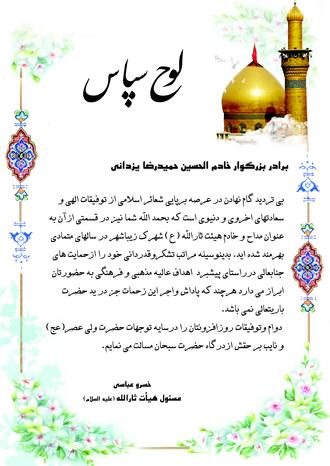 لوح سپاس
برادر بزرگوار خادم الحسین حمیدرضا یزدانی
بی تردید گام نهادن در عرصه برپایی شعائر اسلامی از توفیقات الهی و
سعادتهای اخروی و دنیوی است که بحمد الله شما نیز در قسمتی از آن به
عنوان مداح و خادم هیئت ثارالله ( ع ) شهرک زیباشهر در سالهای متمادی
بهرمند شده اید. بدینوسیله مراتب تشکروقدردانی خود را ازحمایت های
جنابعالی درراستای پیشبرد اهداف عالیه مذهبی و فرهنگی به حضورتان
ابراز می دارد هرچند که پاداش واجر این زحمات جز در ید حضرت
باریتعالی نمی باشد.
دوام وتوفیقات روزافزونتان را درسایه توجهات حضرت ولی عصر(عج)
و نایب بر حقش از درگاه حضرت سبحان مسالت می نمایم.
خسرو عباسی
مسئول هیأت ثارالله (علیه السلام)